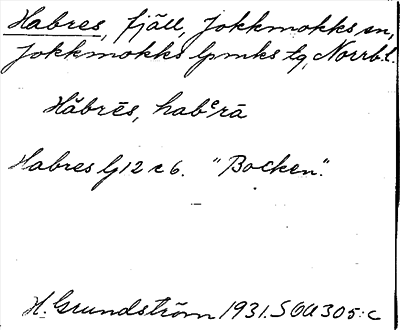 Habres, fjäll, Jokkmokks sn,
Jokkmokks lpmks tg, Norrb.l.
Hǎbrēs, habᵉrā
Habres G12c6. "Bocken".
H. Grundström 1931. SOA 305:c